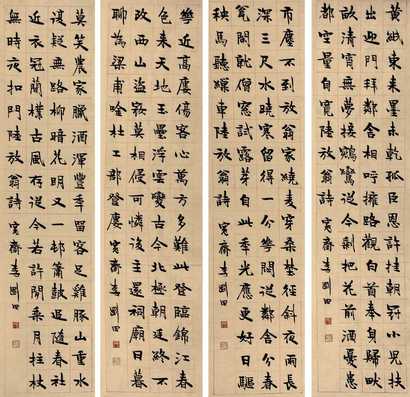 黄紙東来墨未乾孤臣恩許挂朝冠小兒扶
出迎門拜鄰舍相呼擁路觀白首奉身歸畎
畝清宵無夢接鵷鸞從今剩把花前酒憂患
都空量自寬陸放翁詩 寞齋李剛田
市塵不到放翁家繞麥穿桑野徑斜夜雨長
深三尺水曉寒留得一分花閑從鄰舍分春
甕閑就僧窗試露芽自此年光應更好日驅
秧馬聽繰車陸放翁詩 寞齋李剛田
花近高樓傷客心萬方多難此登臨錦江春
色来天地玉壘浮雲變古今北極朝廷終不
改西山盗寇莫相侵可憐後主還祠廟日暮
聊為梁甫吟杜工部登樓 寞齋李剛田
莫笑農家臘酒渾豐年留客足雞豚山重水
複疑無路柳暗花明又一邨簫鼓追隨春社
近衣冠簡樸古風存從今若許閑乘月拄杖
無時夜扣門陸放翁詩 寞齋李剛田